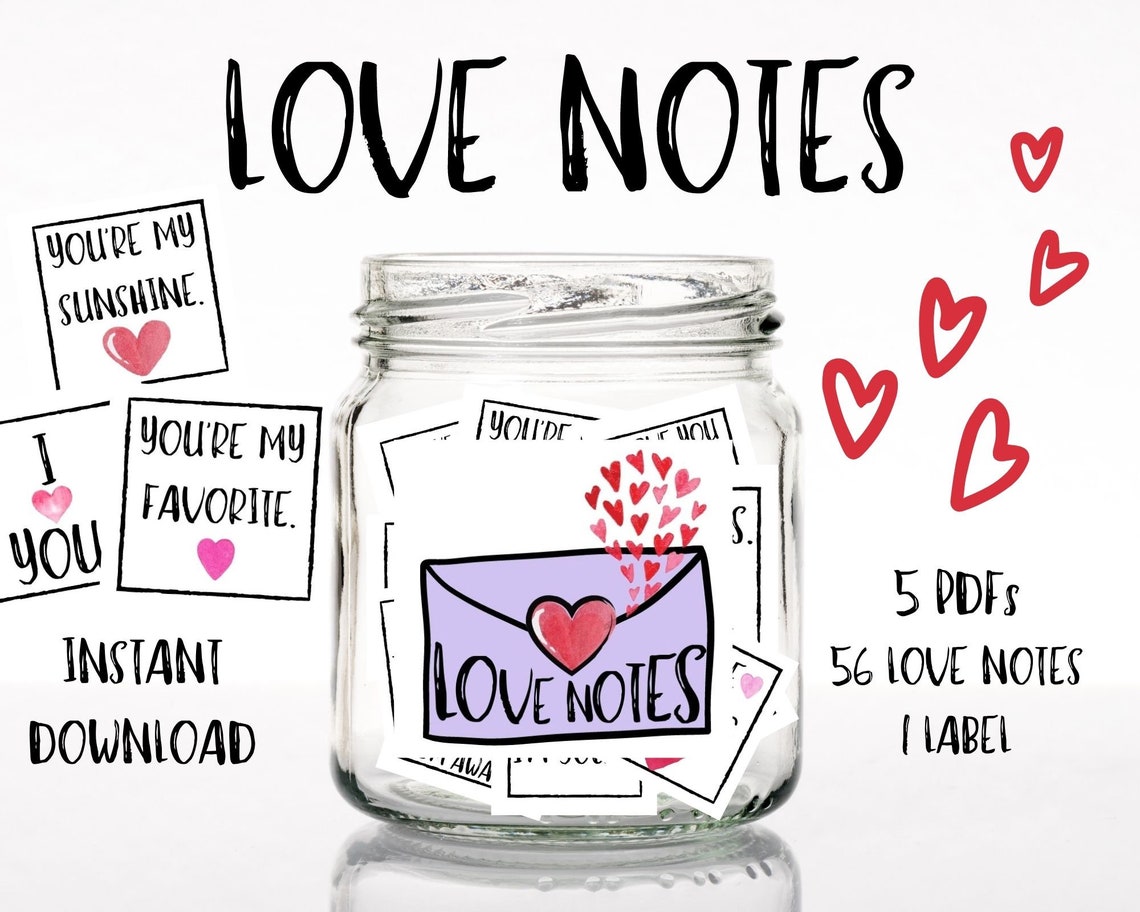 LOVE NOTES
YOU'RE MY
SUNSHINE.
I
YOU
YOU'RE MY
FAVORITE.
INSTANT
DOWNLOAD
YOU'RE
YOU
S.
LOVE NOTES
AWA
5 PDFs
56 LOVE NOTES
1 LABEL